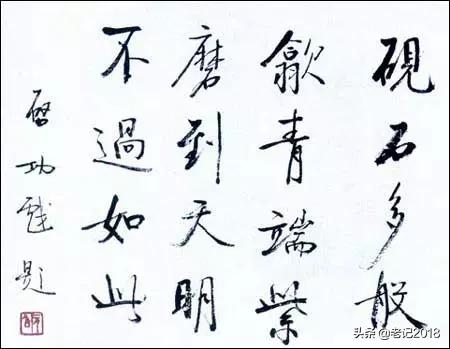 硯石多般
歙青端紫
磨到天明
不過如此
啓功戲題
头条 @老记2018